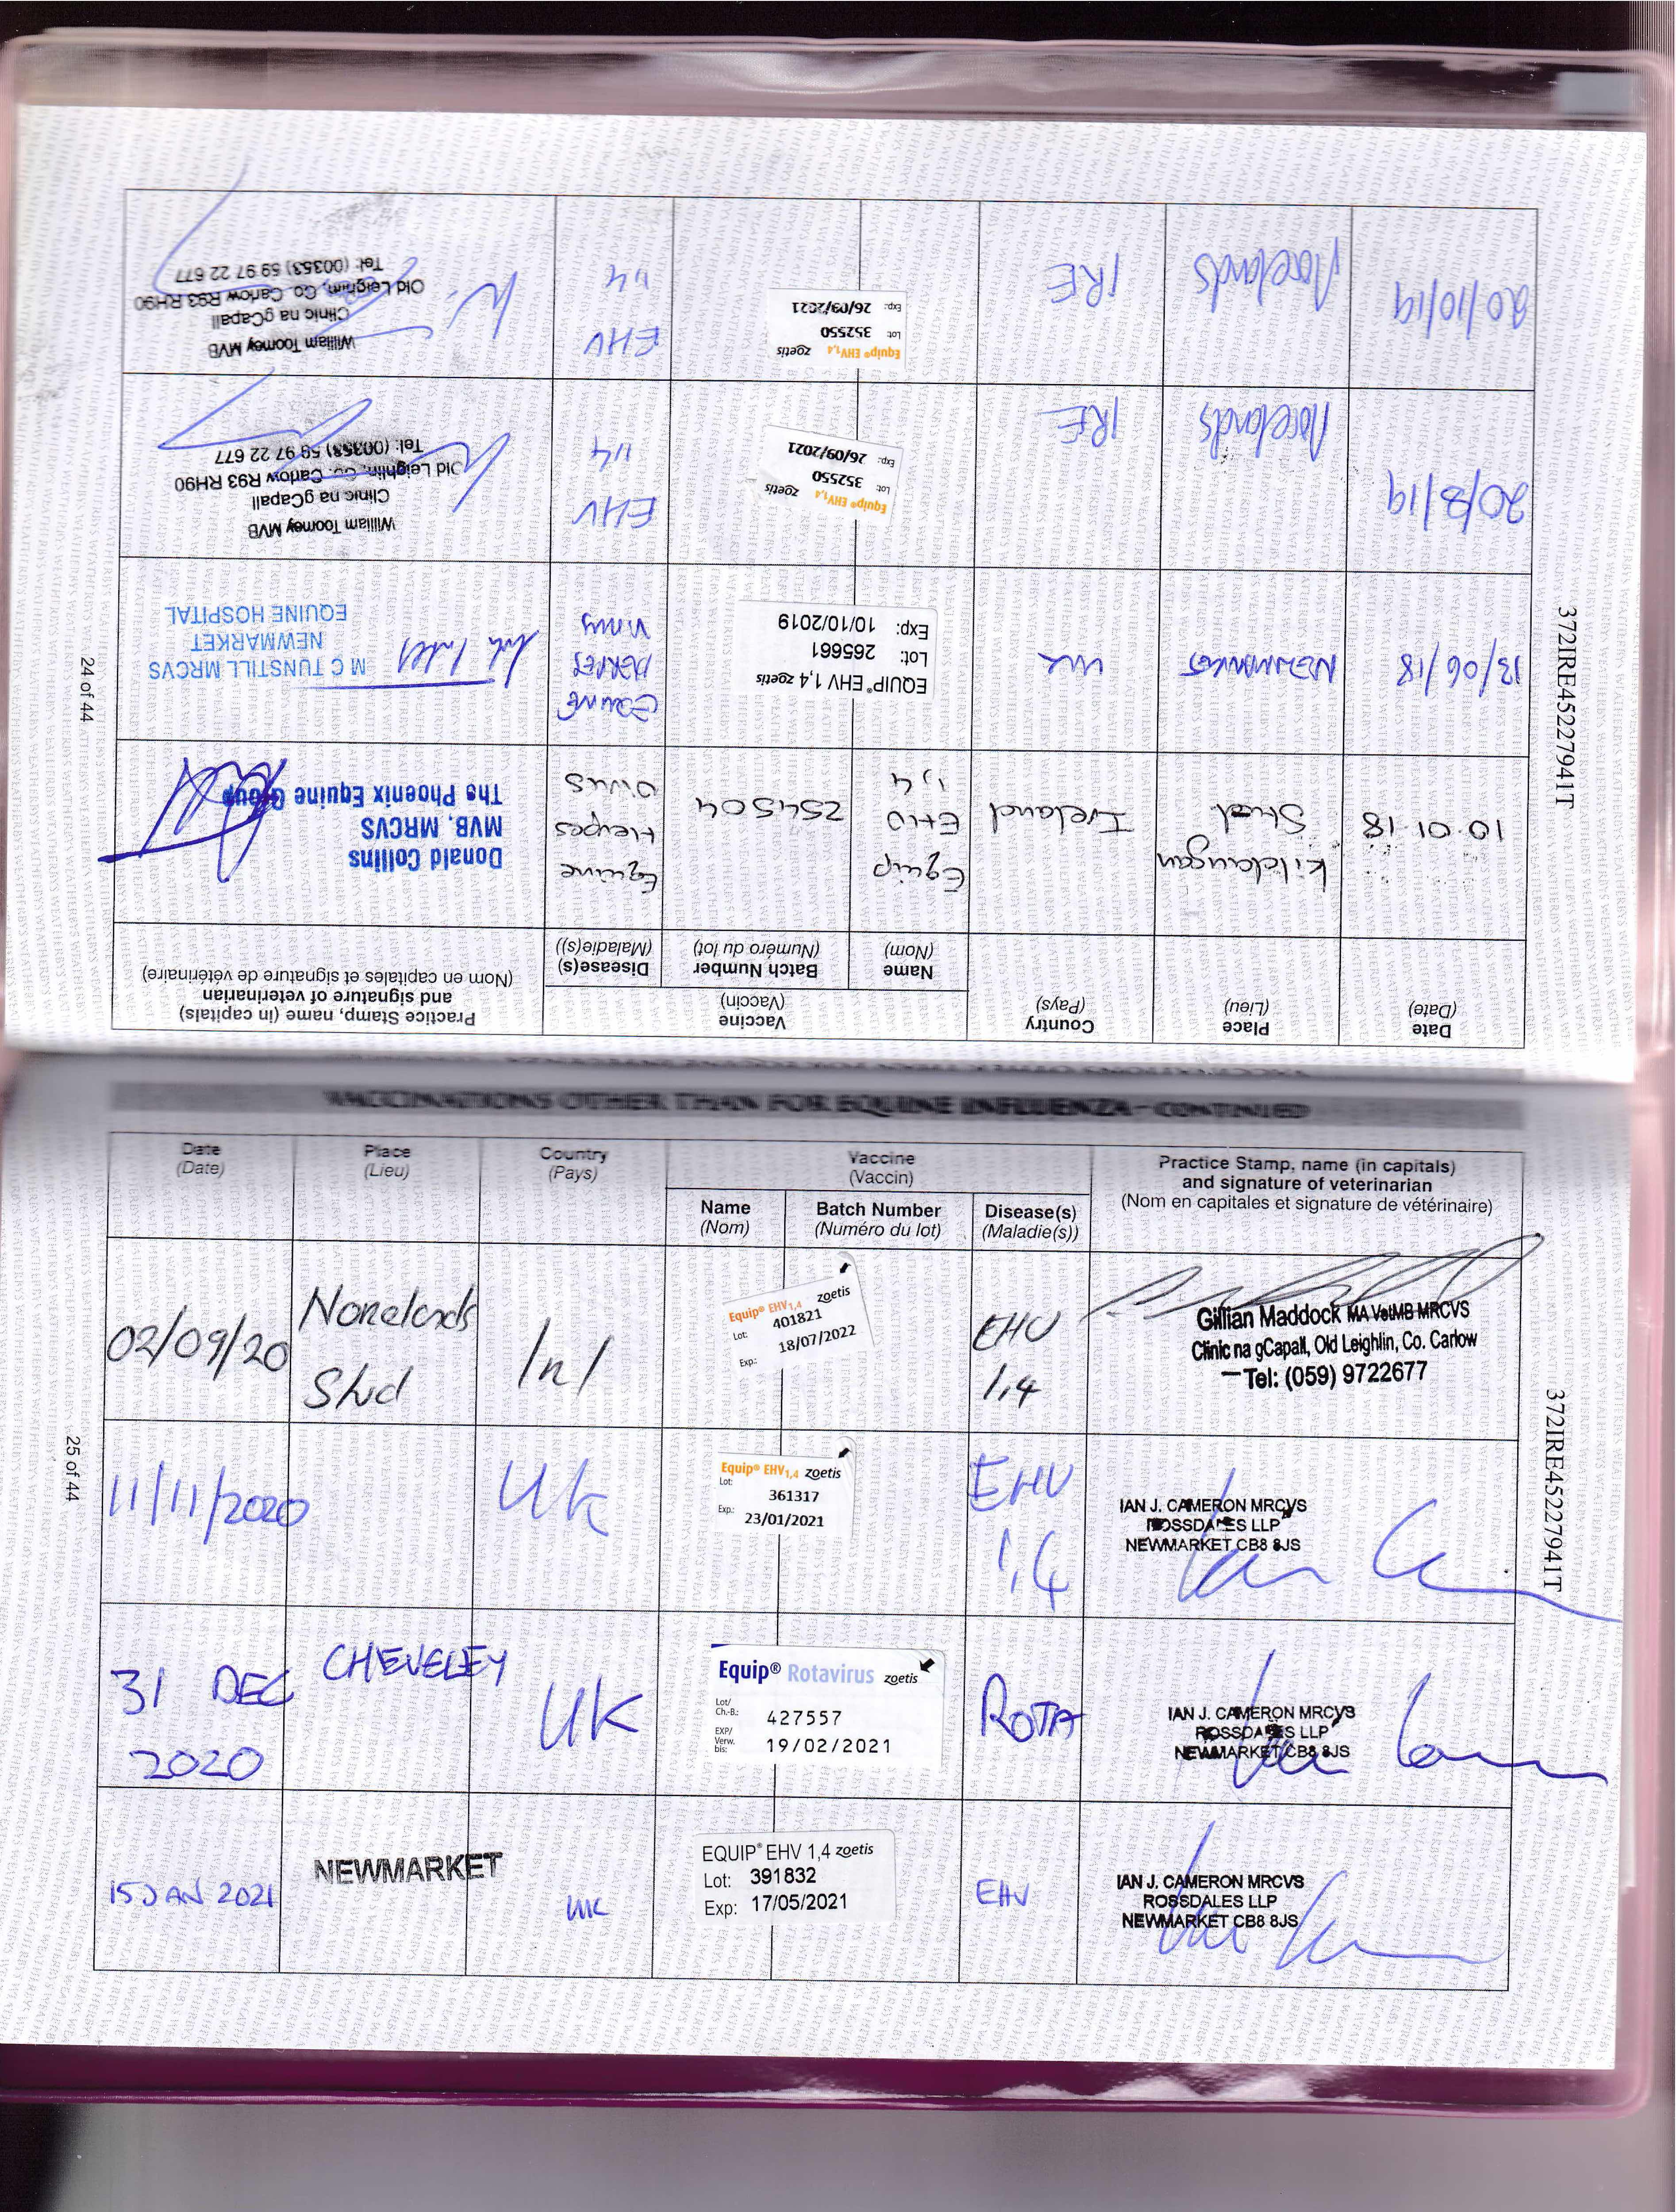 Date
(Date)
Place
(Lieu)
Country
(Pays)
Vaccine
(Vaccin)
Name
(Nom)
Batch Number
(Numéro du lot)
Disease(s)
(Maladie(s))
Practice Stamp, name (in capitals)
and signature of veterinarian
(Nom en capitales et signature de vétérinaire)
10.01.18
Kildangan
Stud
Ireland
Equip
EHV
1,4
254504
Equine
Herpes
Virus
Donald Collins
MVB, MRCVS
The Phoenix Equine Group
13/06/18
NEWMARKET
UK
EQUIP® EHV 1,4 zoetis
Lot: 265661
Exp: 10/10/2019
EQUINE
HERPES
VIRUS
M C TUNSTILL MRCVS
NEWMARKET
EQUINE HOSPITAL
20/8/19
Norelands
IRE
Equip® EHV1,4 zoetis
Lot: 352550
Exp.: 26/09/2021
EHV
1,4
William Toomey MVB
Clinic na gCapall
Old Leighlin, Co. Carlow R93 RH90
Tel: (00353) 59 97 22 677
20/10/19
Norelands
IRE
Equip® EHV1,4 zoetis
Lot: 352550
Exp.: 26/09/2021
EHV
1,4
William Toomey MVB
Clinic na gCapall
Old Leighlin, Co. Carlow R93 RH90
Tel: (00353) 59 97 22 677
24 of 44
372IRE45227941T
VACCINATIONS OTHER THAN FOR EQUINE INFLUENZA - CONTINUED
Date
(Date)
Place
(Lieu)
Country
(Pays)
Vaccine
(Vaccin)
Name
(Nom)
Batch Number
(Numéro du lot)
Disease(s)
(Maladie(s))
Practice Stamp, name (in capitals)
and signature of veterinarian
(Nom en capitales et signature de vétérinaire)
02/09/20
Norelands
Stud
Irl
Equip® EHV1,4 zoetis
Lot: 401821
Exp.: 18/07/2022
EHV
1,4
Gillian Maddock MA VetMB MRCVS
Clinic na gCapall, Old Leighlin, Co. Carlow
Tel: (059) 9722677
11/11/2020
UK
Equip® EHV1,4 zoetis
Lot: 361317
Exp.: 23/01/2021
EHV
1,4
IAN J. CAMERON MRCVS
ROSSDALES LLP
NEWMARKET CB8 8JS
31 DEC
2020
CHEVELEY
UK
Equip® Rotavirus zoetis
Lot/
Ch.-B.: 427557
EXP/
Verw.
bis: 19/02/2021
ROTA
IAN J. CAMERON MRCVS
ROSSDALES LLP
NEWMARKET CB8 8JS
15 JAN 2021
NEWMARKET
UK
EQUIP® EHV 1,4 zoetis
Lot: 391832
Exp: 17/05/2021
EHV
IAN J. CAMERON MRCVS
ROSSDALES LLP
NEWMARKET CB8 8JS
25 of 44
372IRE45227941T